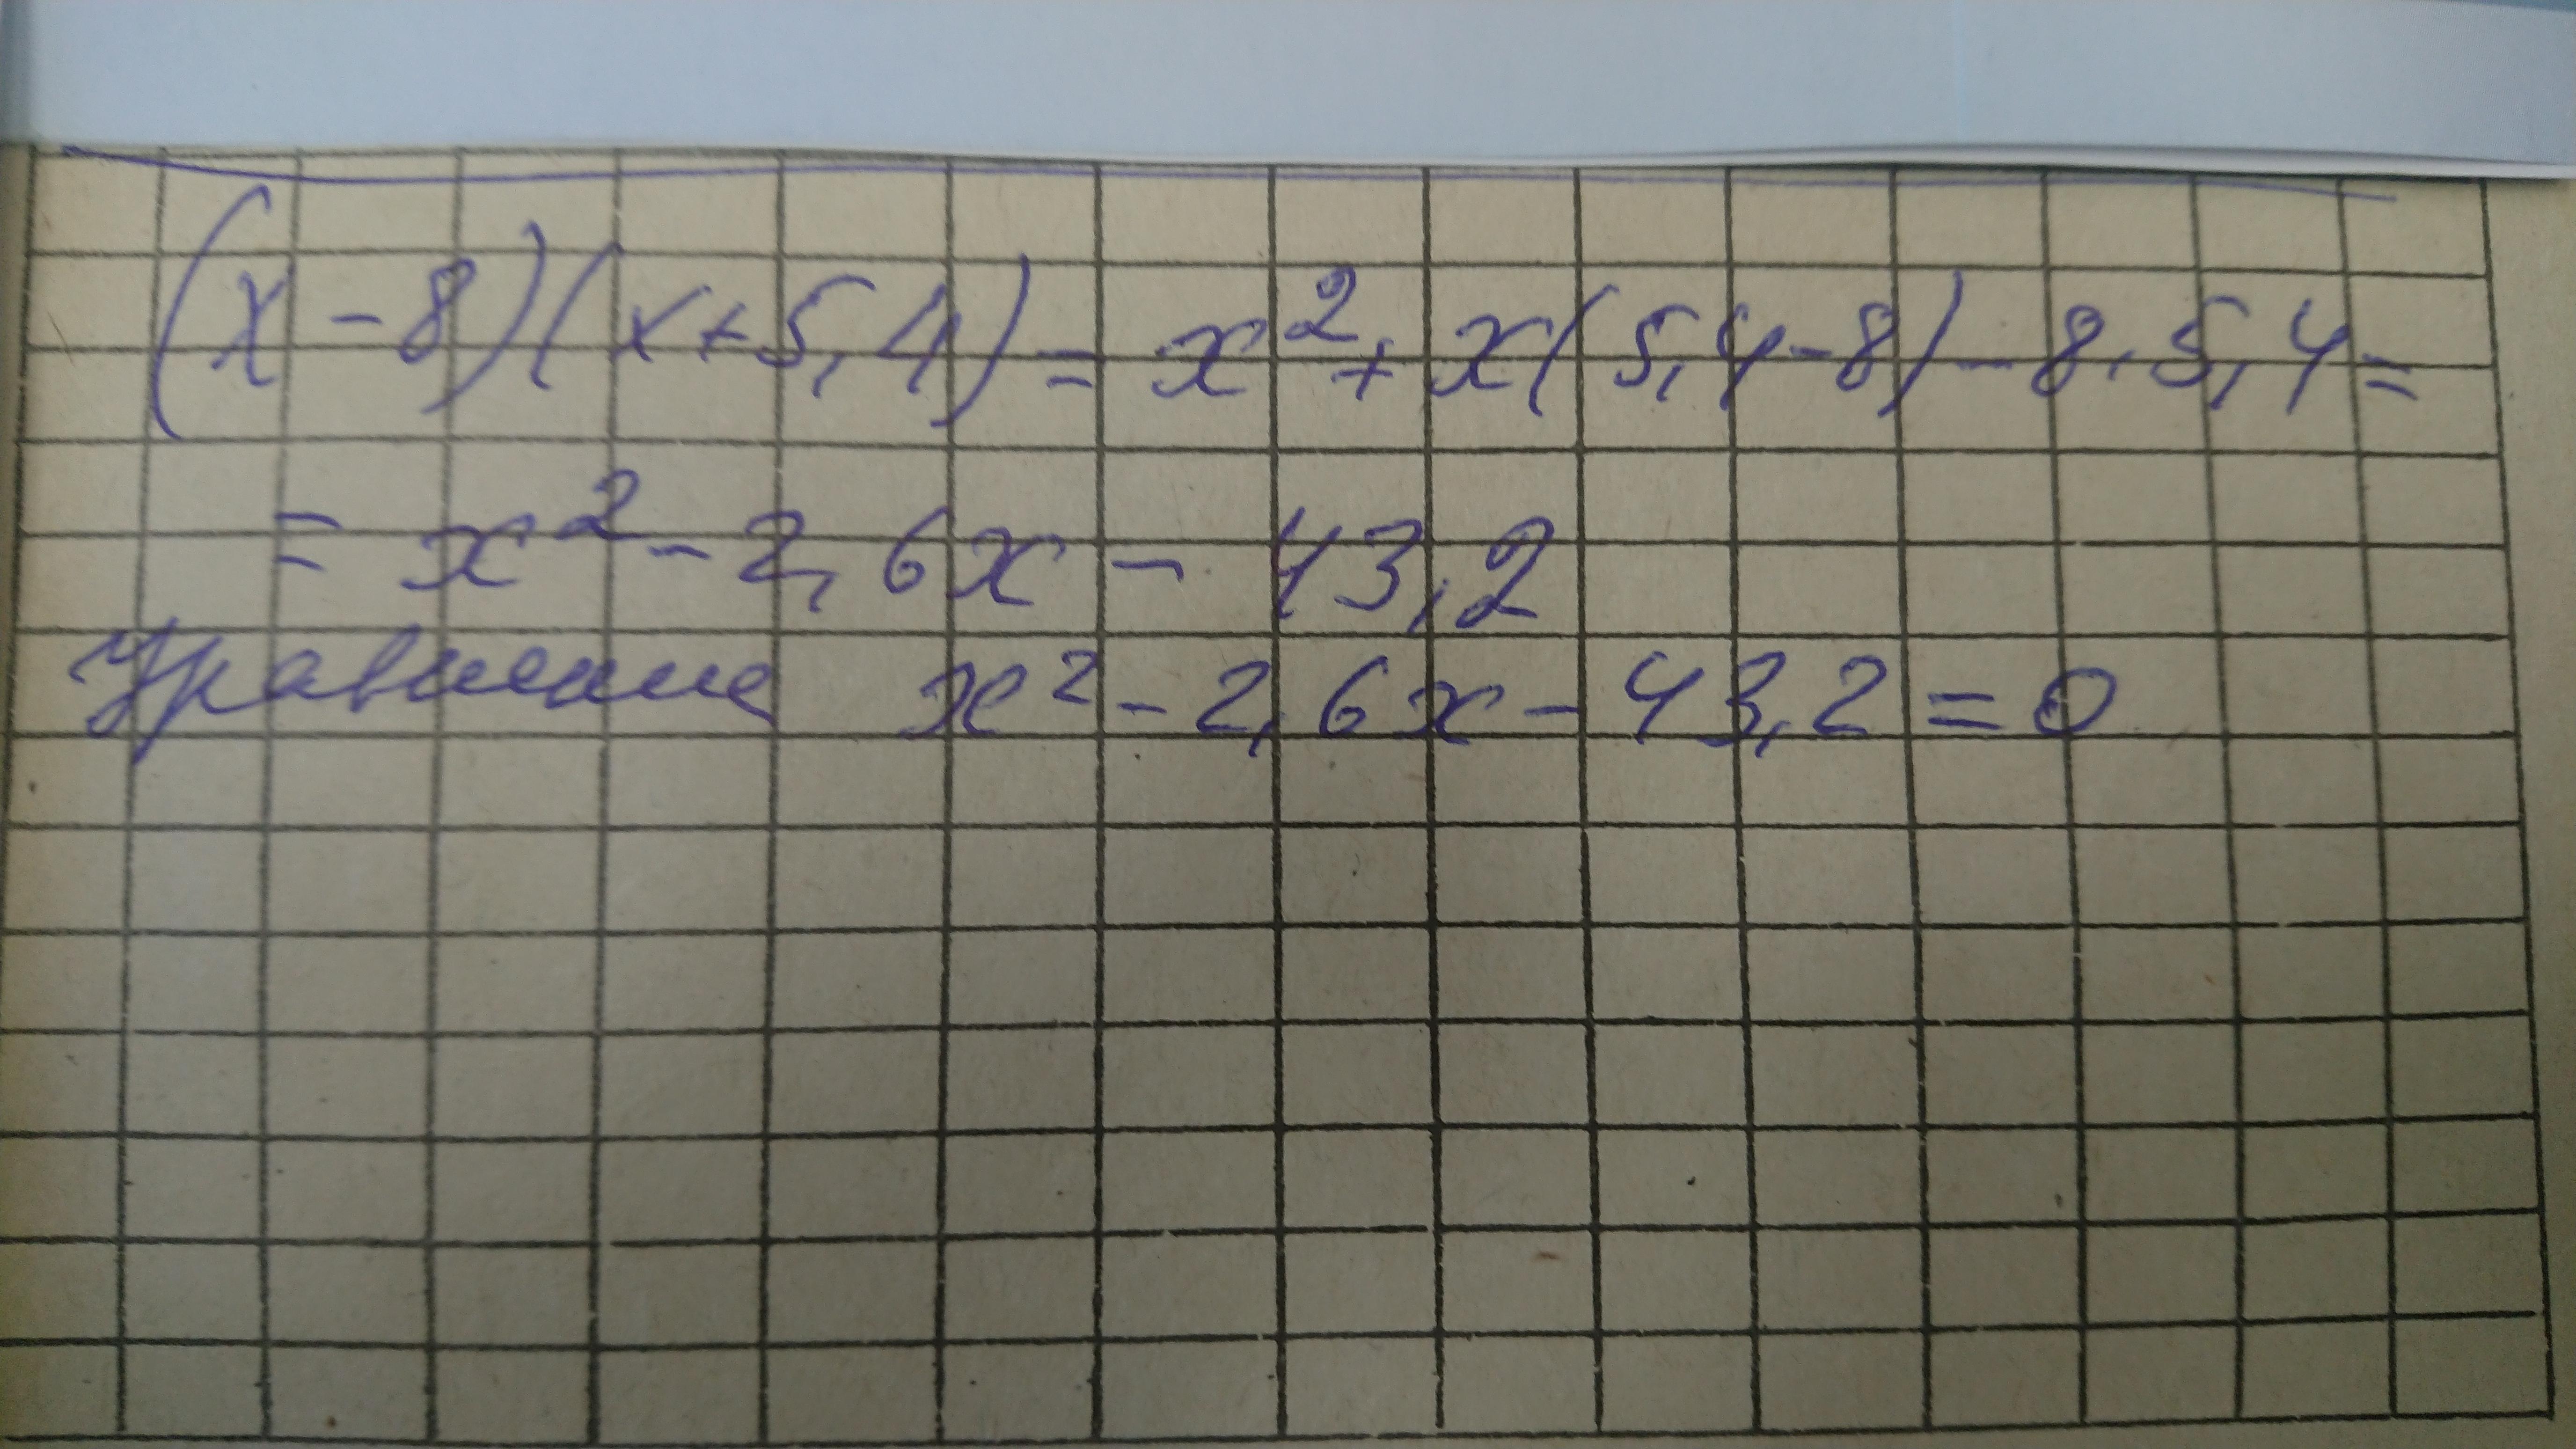 (x-8)(x+5,4)=x²+x(5,4-8)-8·5,4=
=x²-2,6x-43,2
Уравнение x²-2,6x-43,2=0